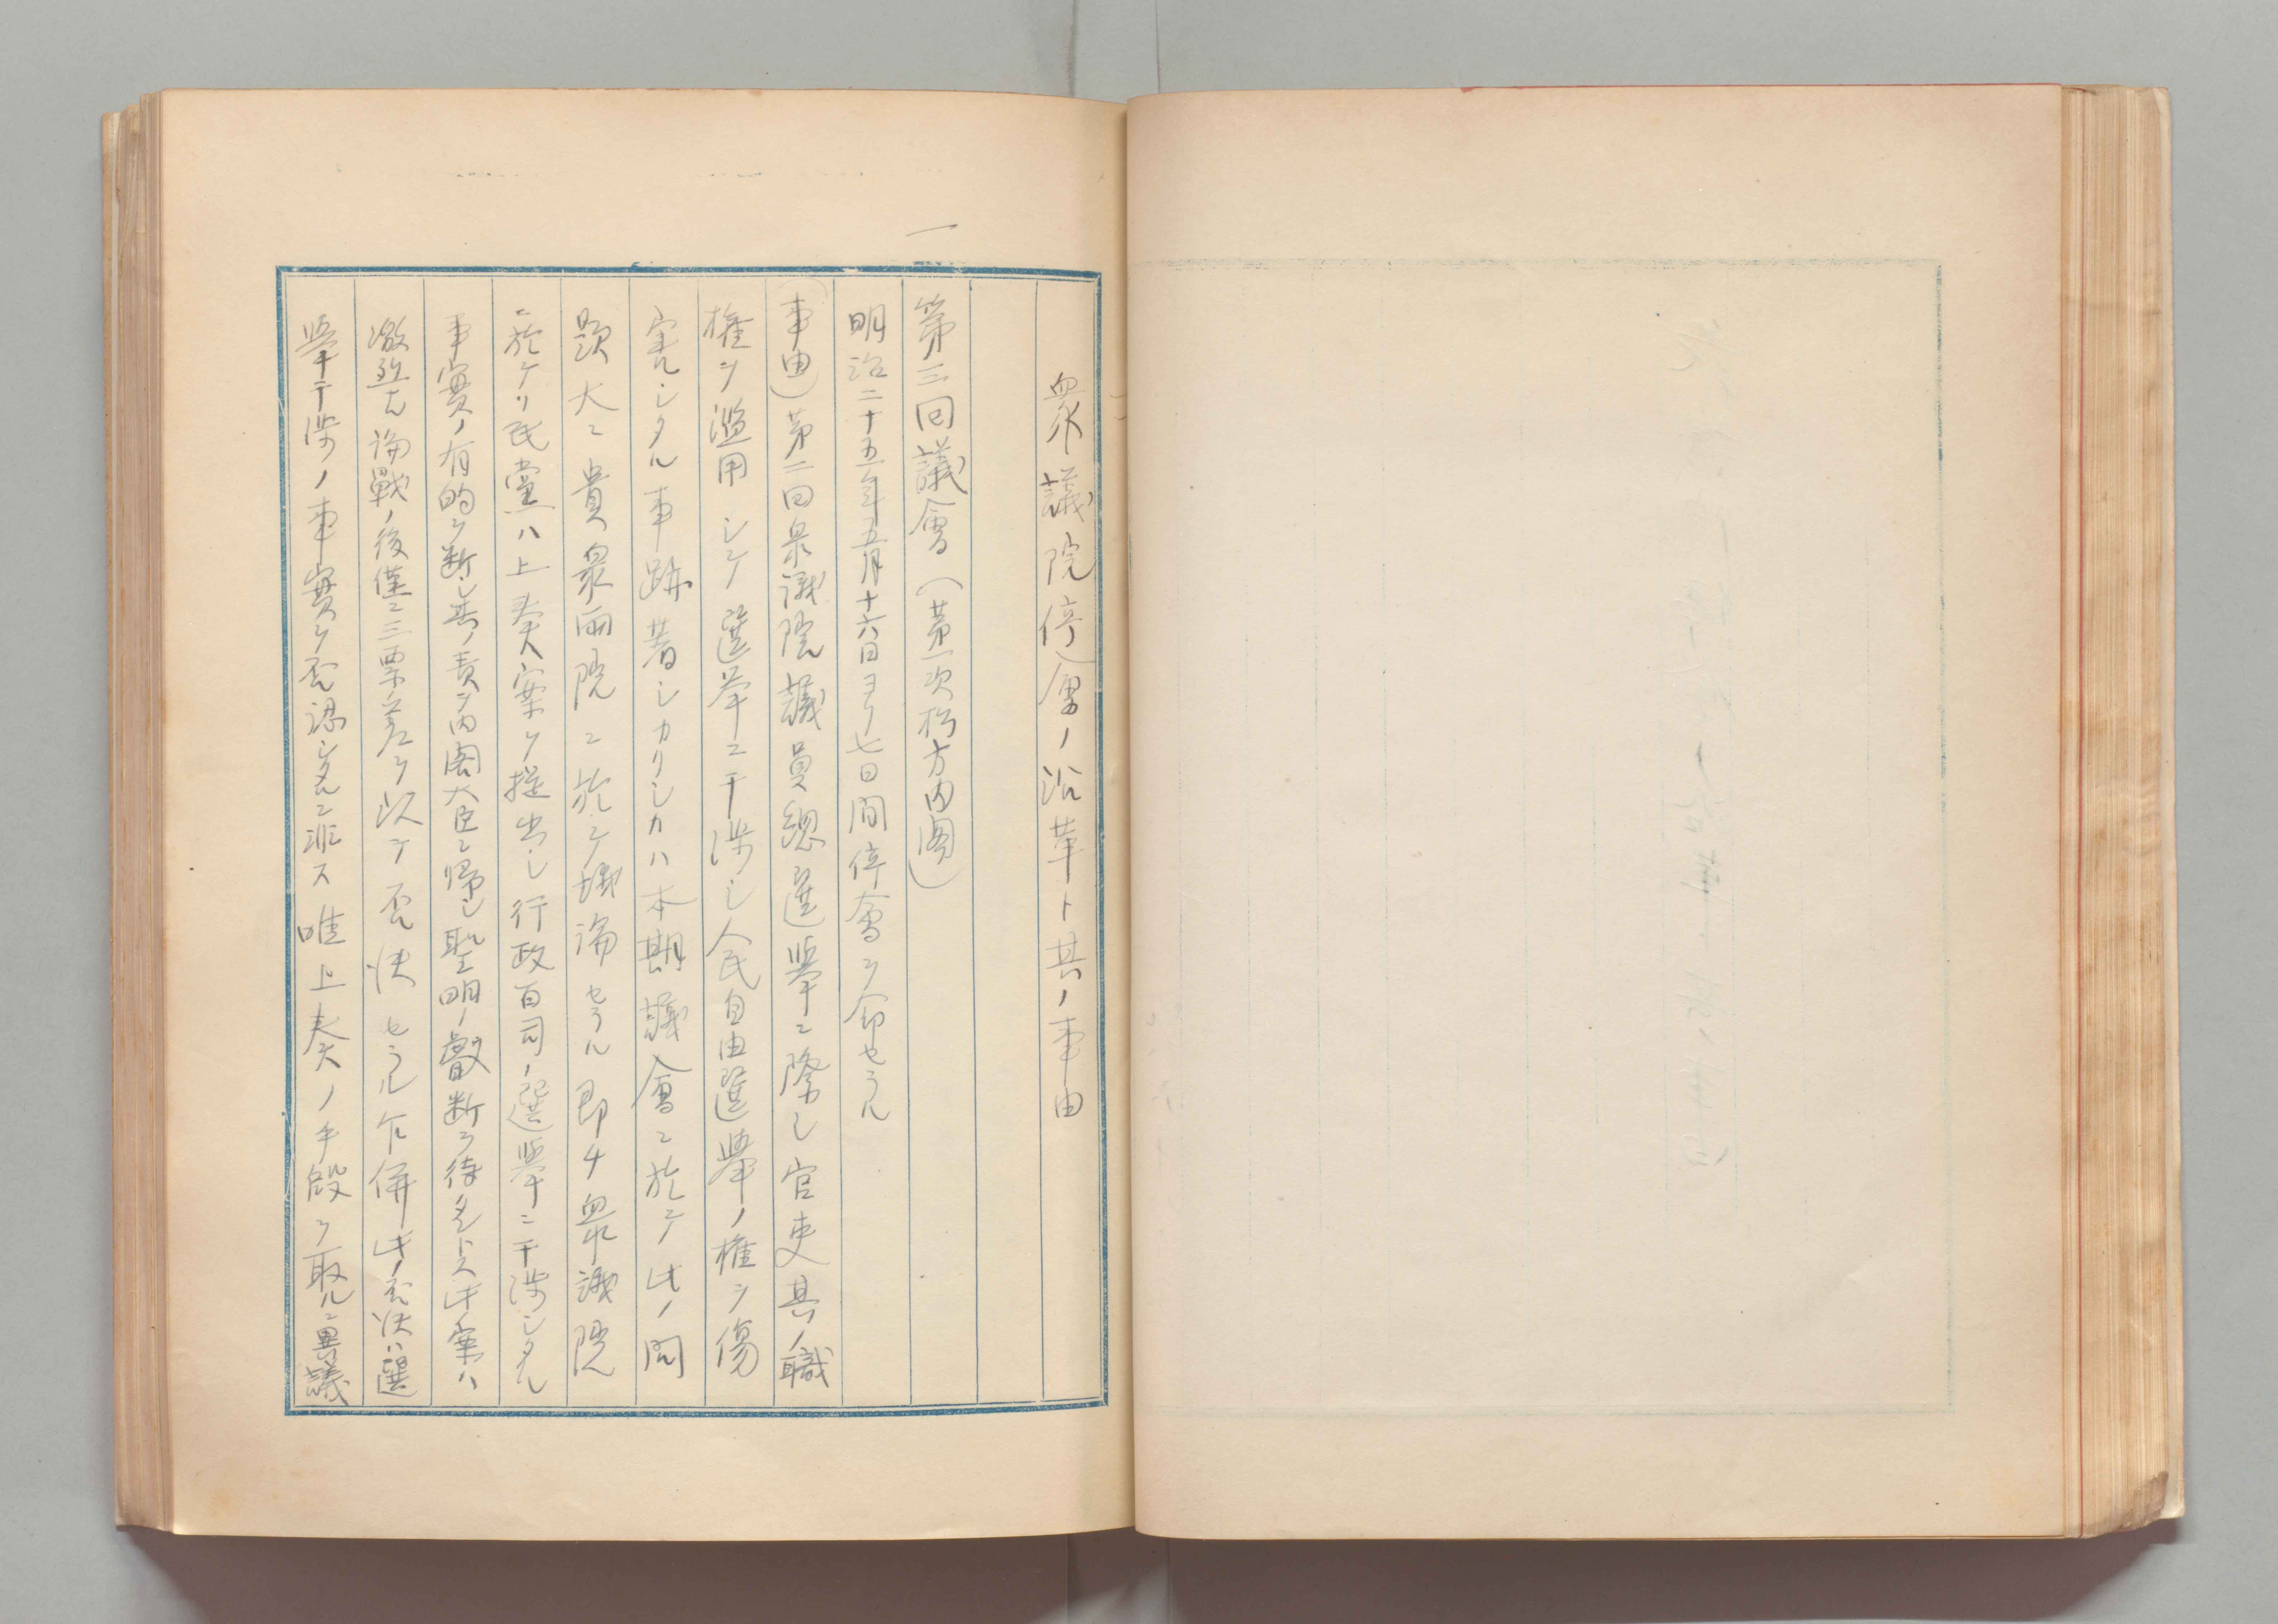 一
衆議院停會ノ沿革ト其ノ事由
第三回議會（第一次松方内閣）
明治二十五年五月十六日ヨリ七日間停會ヲ命セラル
（事由）第二回衆議院議員總選擧ニ際シ官吏其ノ職
權ヲ濫用シテ選挙ニ干渉シ人民自由選擧ノ權ヲ傷
害シタル事跡著シカリシカハ本期議會ニ於テ此ノ問
題大ニ貴衆両院ニ於テ論セラル即チ衆議院
ニ於テハ民黨ハ上奏案ヲ提出シ行政百司ノ選擧ニ干渉シタル
事實ノ有的ヲ断シ其ノ責ヲ内閣大臣ニ帰シ聖明ノ叡断ヲ待タントス此ノ案ハ
激烈ナル論戰ノ後僅ニ三票ノ差ヲ以テ否決セラル併此ノ否決ハ選
擧干渉ノ事實ヲ否認シタルニ非ス唯上奏ノ手段ヲ取ルニ異議